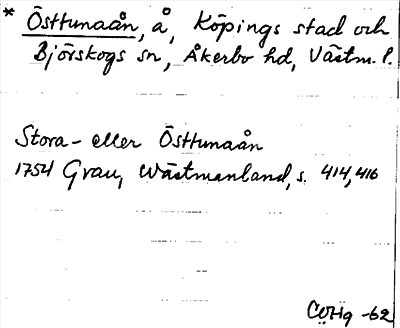 * Östtunaån, å, Köpings stad och
Björskogs sn, Åkerbo hd, Västm. l.
Stora- eller Östtunaån
1754 Grau, Wästmanland, s. 414, 416
-62